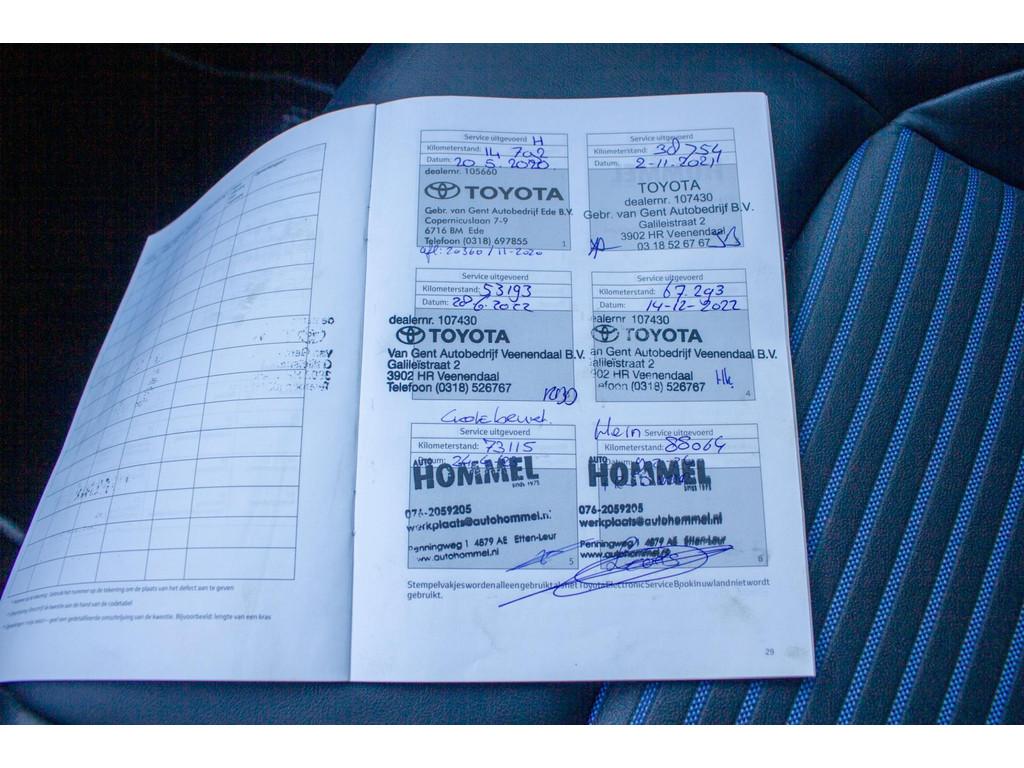 Service uitgevoerd H
Kilometerstand: 14 702
Datum: 20 5. 2020
dealernr. 105660
TOYOTA
Gebr. van Gent Autobedrijf Ede B.V.
Copernicuslaan 7-9
6716 BM Ede
Telefoon (0318) 697855
1
afl: 20360 / 11-2020
Service uitgevoerd
Kilometerstand: 38754
Datum: 2-11-2021
TOYOTA
dealernr. 107430
Gebr. van Gent Autobedrijf B.V.
Galileistraat 2
3902 HR Veenendaal
03 18 52 67 67
Service uitgevoerd
Kilometerstand: 53193
Datum: 28-6-2022
dealernr. 107430
TOYOTA
Van Gent Autobedrijf Veenendaal B.V.
Galileïstraat 2
3902 HR Veenendaal
Telefoon (0318) 526767
Service uitgevoerd
Kilometerstand: 67.293
Datum: 14-12-2022
ealernr. 107430
TOYOTA
an Gent Autobedrijf Veenendaal B.V.
alileïstraat 2
902 HR Veenendaal
efoon (0318) 526767
4
Grote beurt.
Service uitgevoerd
Kilometerstand: 73115
AUTO
HOMMEL
sinds 1975
076-2059205
werkplaats@autohommel.nl
Penningweg 1 4879 AE Etten-Leur
www.autohommel.nl
5
Klein Service uitgevoerd
Kilometerstand: 88064
AUTO
HOMMEL
sinds 1975
076-2059205
werkplaats@autohommel.nl
Penningweg 1 4879 AE Etten-Leur
www.autohommel.nl
6
Stempelvakjes worden alleen gebruikt als het Toyota Electronic Service Book in uw land niet wordt
gebruikt.
29